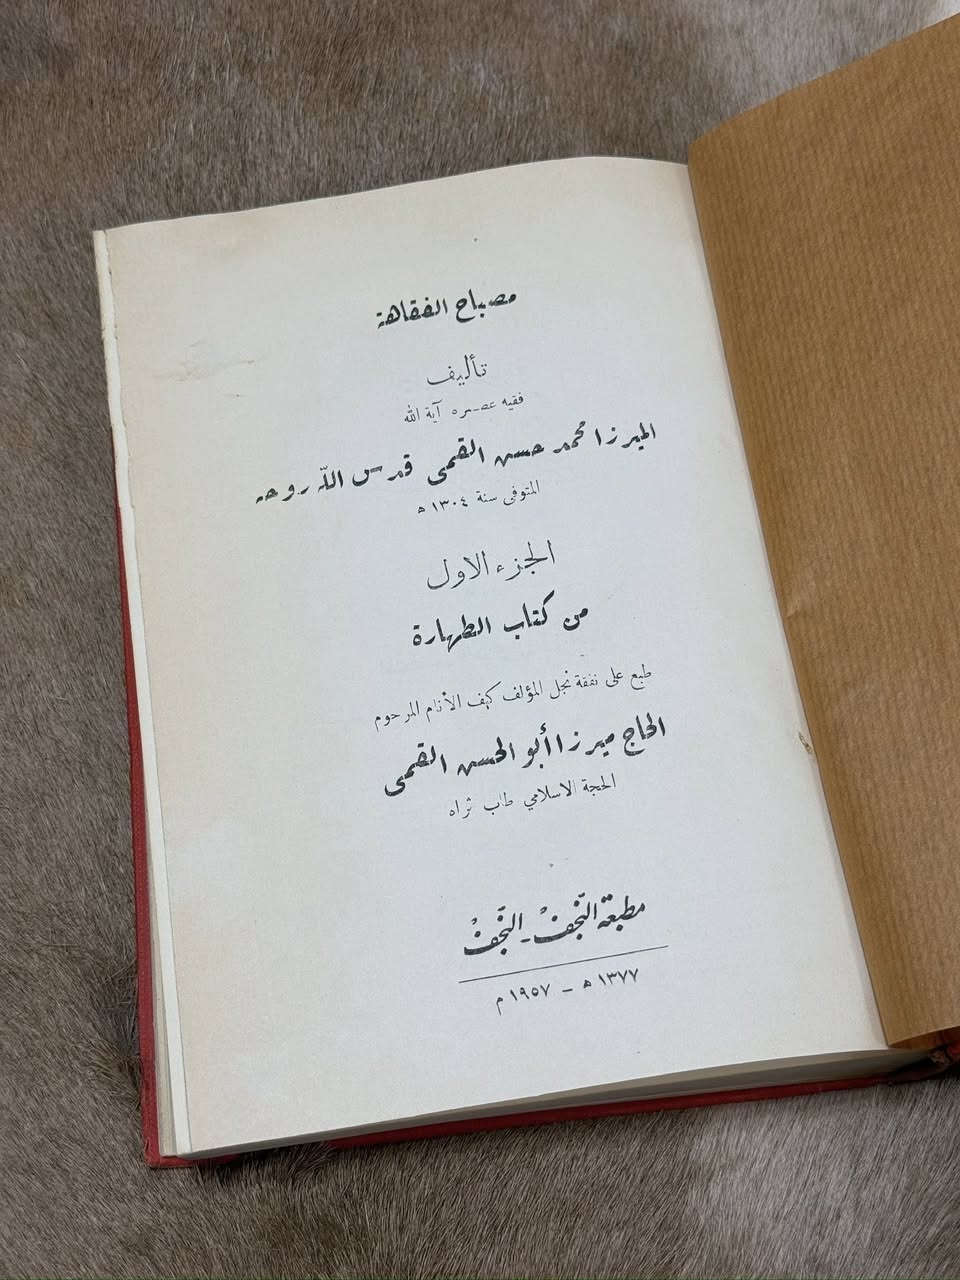 مصباح الفقاهة
تأليف
فقيه عصره آية الله
الميرزا محمد حسن القمي قدس الله روحه
المتوفى سنة ١٣٠٤ ه
الجزء الاول
من كتاب الطهارة
طبع على نفقة نجل المؤلف كهف الأنام المرحوم
الحاج ميرزا أبو الحسن القمي
الحجة الاسلامي طاب ثراه
مطبعة النجف - النجف
١٣٧٧ ه - ١٩٥٧ م